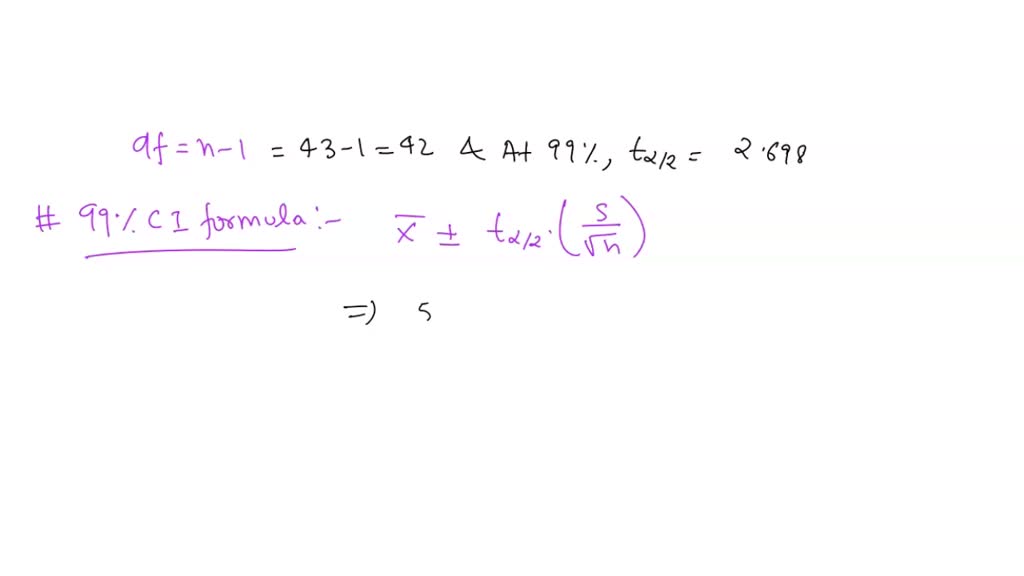 df = n-1 = 43-1 = 42 & At 99%, tα/2 = 2.698
# 99% CI formula:- x̄ ± tα/2·(s/√n)
⇒) 5